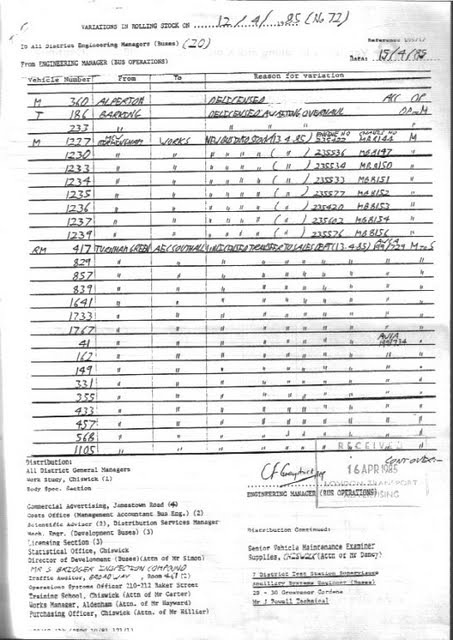 VARIATIONS IN ROLLING STOCK ON 12/4/85 (No 72)
To All District Engineering Managers (Buses) (20)
From ENGINEERING MANAGER (BUS OPERATIONS)
Date: 15/4/85
Vehicle Number From To Reason for variation
M 360 ALPERTON DELICENSED
T 186 BARKING DELICENSED AWAITING OVERHAUL
233 " " " "
M 1227 WORKS M
1230 " " " " " " ( " ) 235536 MB8147 "
1233 " " " " " " ( " ) MB8150 "
1234 " " " " " " ( " ) 235533 MB8151 "
1235 " " " " " " ( " ) 235577 MB8152 "
1236 " " " " " " ( " ) 235420 MB8153 "
1237 " " " " " " ( " ) MB8154 "
1239 " " " " " " ( " ) 235576 MB8156 "
RM 417 TURNHAM GREEN AEC SOUTHALL UNLICENSED TRANSFER TO SALES DEPT (13.4.85) M to S
829 " " " " " " " " "
857 " " " " " " " " "
839 " " " " " " " " "
1641 " " " " " " " " "
1733 " " " " " " " " "
1767 " " " " " " " " "
41 " " " " " " " "
162 " " " " " " " " "
149 " " " " " " " " "
331 " " " " " " " " "
355 " " " " " " " " "
433 " " " " " " " " "
457 " " " " " " " " "
568 " " " " " " " " "
1105 " " " " " " " " "
RECEIVED
16 APR 1985
LONDON TRANSPORT
ADVERTISING
CONT OVER
ENGINEERING MANAGER (BUS OPERATIONS)
Distribution:
All District General Managers
Work Study, Chiswick (1)
Body Spec. Section
Commercial Advertising, Jamestown Road
Costs Office (Management Accountant Bus Eng.) (2)
Scientific Adviser (3), Distribution Services Manager
Mech. Engr. (Development Buses) (3)
Licensing Section (3)
Statistical Office, Chiswick
Director of Development (Buses)(Attn of Mr Simon)
INSPECTION COMPOUND
Traffic Auditor, BROADWAY, Room
Operations Systems Officer 210-212 Baker Street
Training School, Chiswick (Attn of Mr Carter)
Works Manager, Aldenham (Attn. of Mr Hayward)
Purchasing Officer, Chiswick (Attn of Mr Hillier)
Distribution Continued:
Senior Vehicle Maintenance Examiner
Supplies, CHISWICK (Attn of Mr Dancy)
7 District Test Station Supervisors
Ancillary Systems Engineer (Buses)
28 - 30 Grosvenor Gardens
Mr J Towell Technical